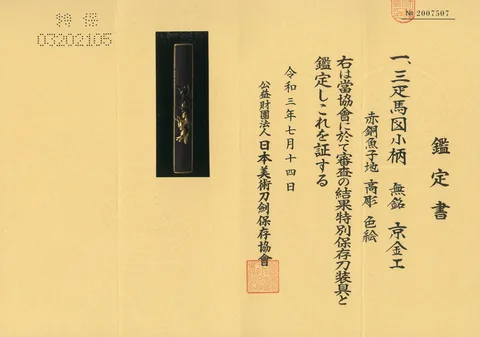 № 2007507
鑑定書
一、三疋馬図小柄 無銘 京金工
赤銅魚子地 高彫 色絵
右は當協會に於て審査の結果特別保存刀装具と
鑑定しこれを証する
令和三年七月十四日
公益財團法人 日本美術刀劍保存協會
特保
03202105